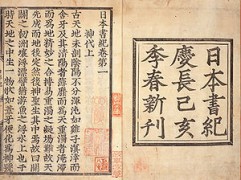 日本書紀
慶長己亥
季春新刊
日本書紀卷第一
神代上
古天地未剖陰陽不分渾沌如鷄子溟涬而
含牙及其清陽者薄靡而爲天重濁者淹滯
而爲地精妙之合摶易重濁之凝竭難故天
先成而地後定然後神聖生其中焉故曰開
闢之初洲壤浮漂譬猶游魚之浮水上也于
時天地之中生一物狀如葦牙便化爲神號